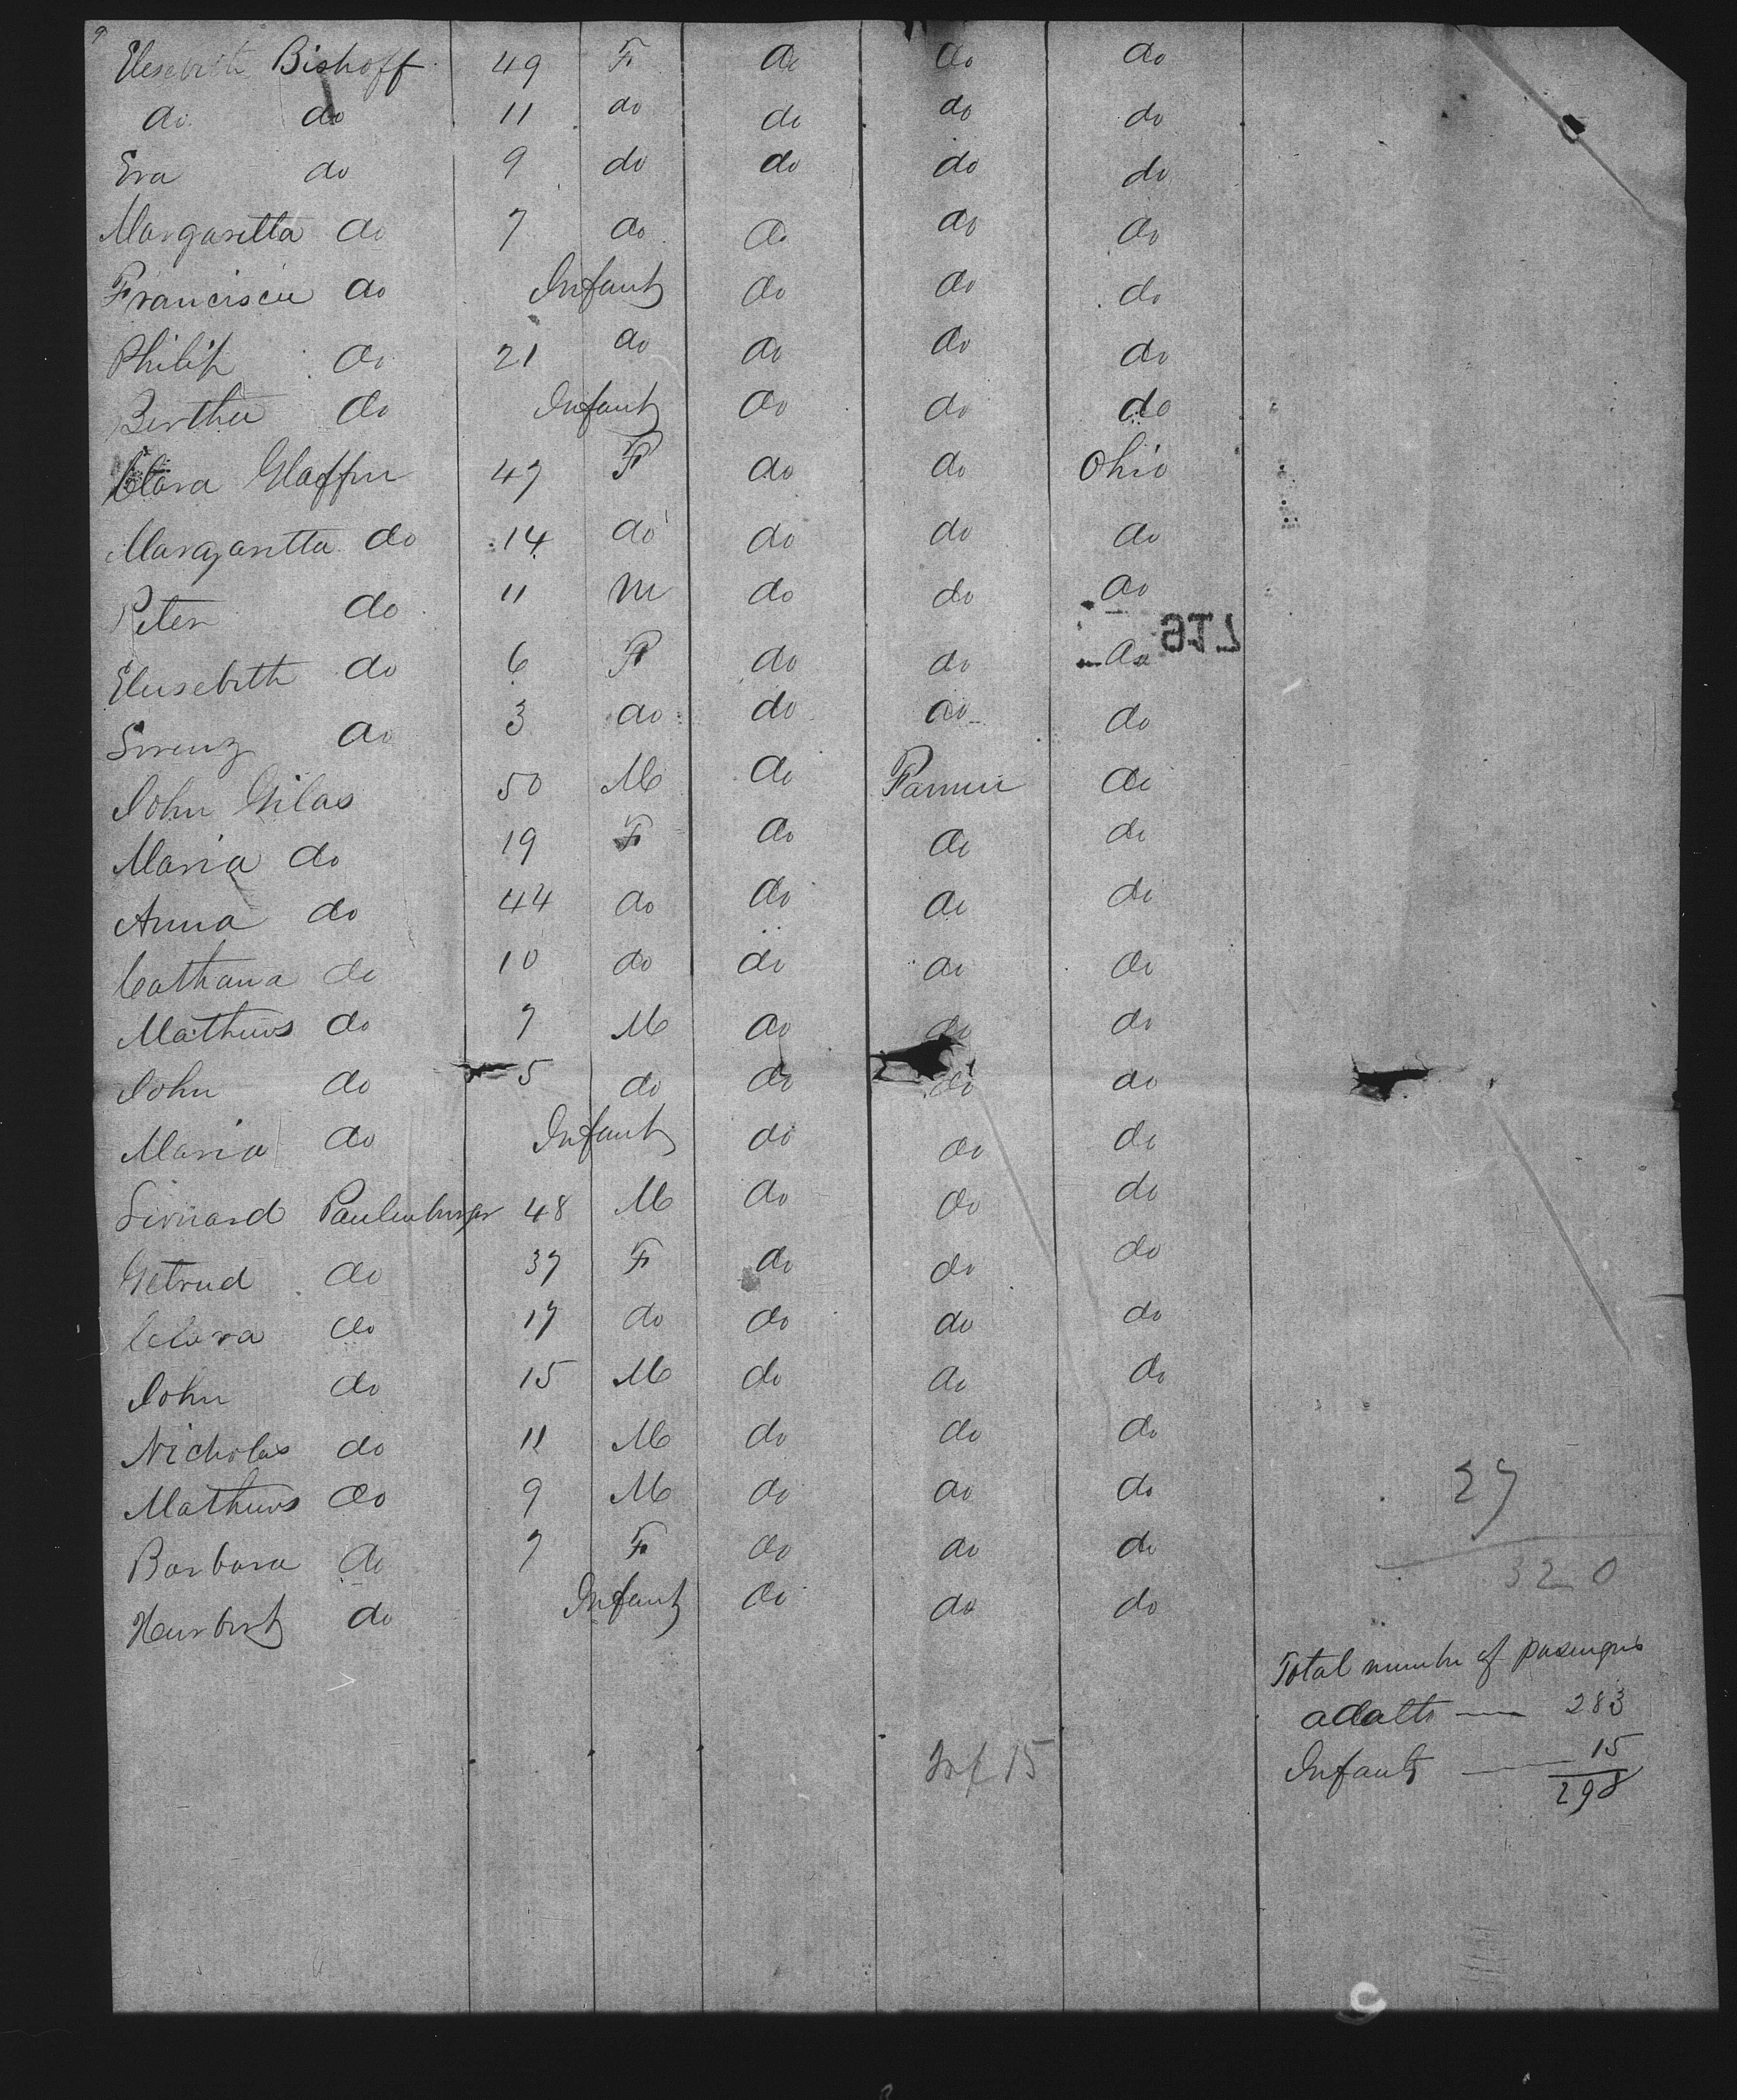 Elesebith Bishoff 49 F do do do
do do 11 do do do do
Eva do 9 do do do do
Margaretta do 7 do do do do
Franciscu do Infant do do do
Philip do 21 do do do do
Bertha do Infant do do do
Clara Glaffen 47 F do do Ohio
Margaretta do 14 do do do do
Peter do 11 M do do do
Elesebeth do 6 F do do do
Lorenz do 3 do do do do
John Gilas 50 M do Farmer do
Maria do 19 F do do do
Anna do 44 do do do do
Cathana do 10 do do do do
Mathews do 7 M do do do
John do 5 do do do do
Maria do Infant do do do
48 M do do do
Getrud do 37 F do do do
Clara do 17 do do do do
John do 15 M do do do
Nicholas do 11 M do do do
Mathews do 9 M do do do
27
Barbara do 7 F do do do
320
Herbert do Infant do do do
Total number of passengers
adults — 283
Inf 15
Infants — 15
298